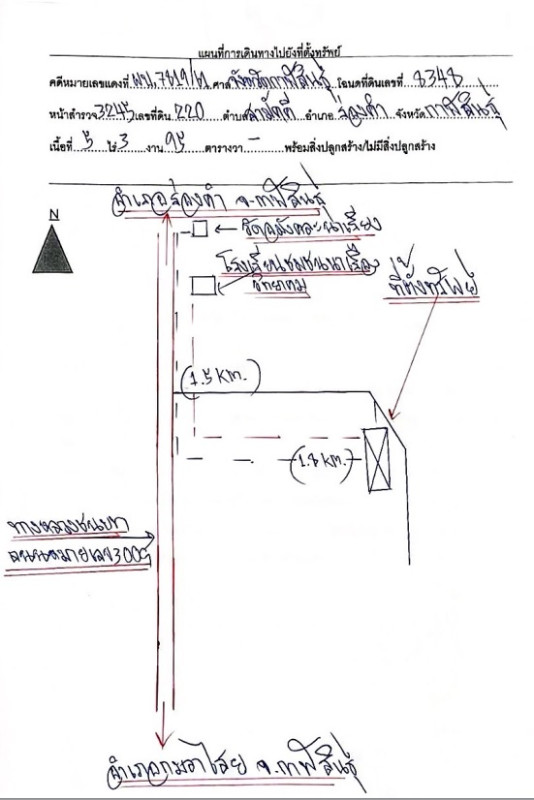 แผนที่การเดินทางไปยังที่ตั้งทรัพย์
คดีหมายเลขแดงที่ ผบ.7819/ ศาล จังหวัดกาฬสินธุ์ โฉนดที่ดินเลขที่ 8348
หน้าสำรวจ 3245 เลขที่ดิน 220 ตำบล สามัคคี อำเภอ ร่องคำ จังหวัด กาฬสินธุ์
เนื้อที่ 5 ไร่ 3 งาน 95 ตารางวา - พร้อมสิ่งปลูกสร้าง/ไม่มีสิ่งปลูกสร้าง
อำเภอร่องคำ จ.กาฬสินธุ์
N
โรงเรียนชุมชนนาเรียง
วิทยาคม
ที่ตั้งทรัพย์
(1.5 KM.)
(1.8 KM.)
ทางหลวงชนบท
ถนนหมายเลข3009
อำเภอกมลาไสย จ.กาฬสินธุ์